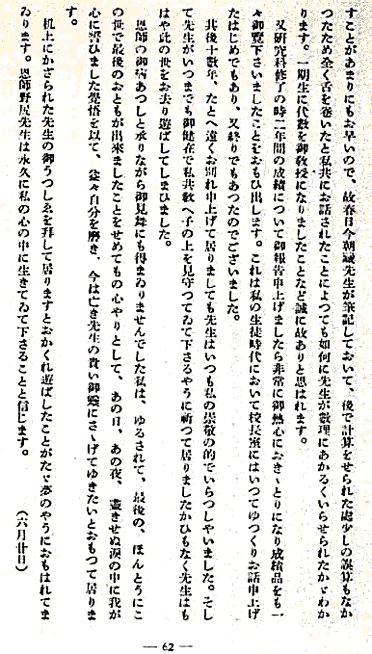 すことがあまりにもお早いので、故春日今朝藏先生が筆記しておいて、後で計算をせられた處少しの誤算もなか
つたため全く舌を卷いたと私共にお話されたことによつても如何に先生が數理にあかるくいらせられたかゞわか
ります。一期生に代數を御教授になりましたことなど誠に故ありと思はれます。
又研究科修了の時二年間の成績について御報告申上げましたら非常に御熱心におきゝとりになり成績品をも一
々御覽下さいましたことをおもひ出します。これは私の生徒時代において校長室にはいつてゆつくりお話申上げ
たはじめでもあり、又終りでもあつたのでございました。
其後十數年、たとへ遠くお別れ申上げて居りましても先生はいつも私の崇敬の的でいらつしやいました。そし
て先生がいつまでも御健在で私共敎へ子の上を見守つてゐて下さるやうに祈つて居りましたかひもなく先生はも
はや此の世をお去り遊ばしてしまひました。
恩師の御病あつしと承りながら御見舞にも得まゐりませんでした私は、ゆるされて、最後の、ほんとうにこ
の世で最後のおともが出來ましたことをせめてもの心やりとして、あの日、あの夜、盡きせぬ淚の中に我が
心に誓ひました覺悟を以て、益々自分を磨き、今は亡き先生の貴い御靈にさゝげてゆきたいとおもつて居りま
す。
机上にかざられた先生の御うつしゑを拜して居りますとおかくれ遊ばしたことがたゞ夢のやうにおもはれてま
ゐります。恩師野尻先生は永久に私の心の中に生きてゐて下さることと信じます。
（六月廿日）
— 62 —